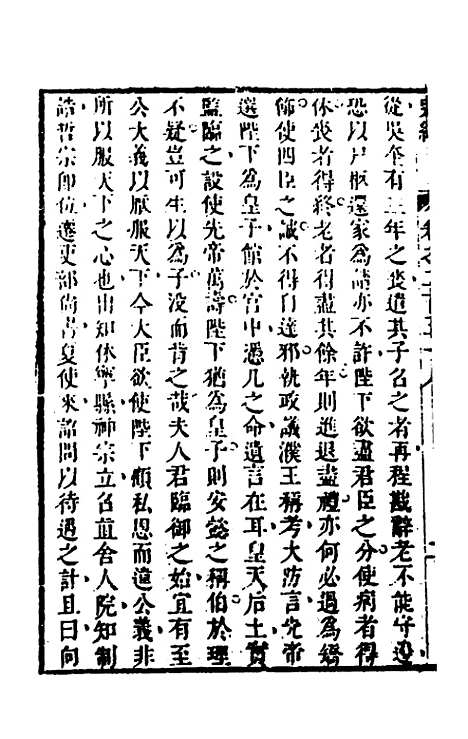 從吳奎有三年之喪遣其子召之者再程戡辭老不能守邊
恐以尸柩還家為請亦不許陛下欲盡君臣之分使病者得
休喪者得終老者得盡其餘年則進退盡禮亦何必過為矯
飾使四臣之誠不得自達邪執政議濮王稱考大防言先帝
選陛下為皇子館於宮中憑几之命遺言在耳皇天后土實
監臨之設使先帝萬壽陛下猶為皇子則安懿之稱伯於理
不疑豈可生以為子沒而背之哉夫人君臨御之始宜有至
公大義以厭服天下今大臣欲使陛下顧私恩而違公義非
所以服天下之心也出知休寧縣神宗立召直舍人院知制
誥哲宗即位遷吏部尚書夏使來詔問以待遇之計且曰向